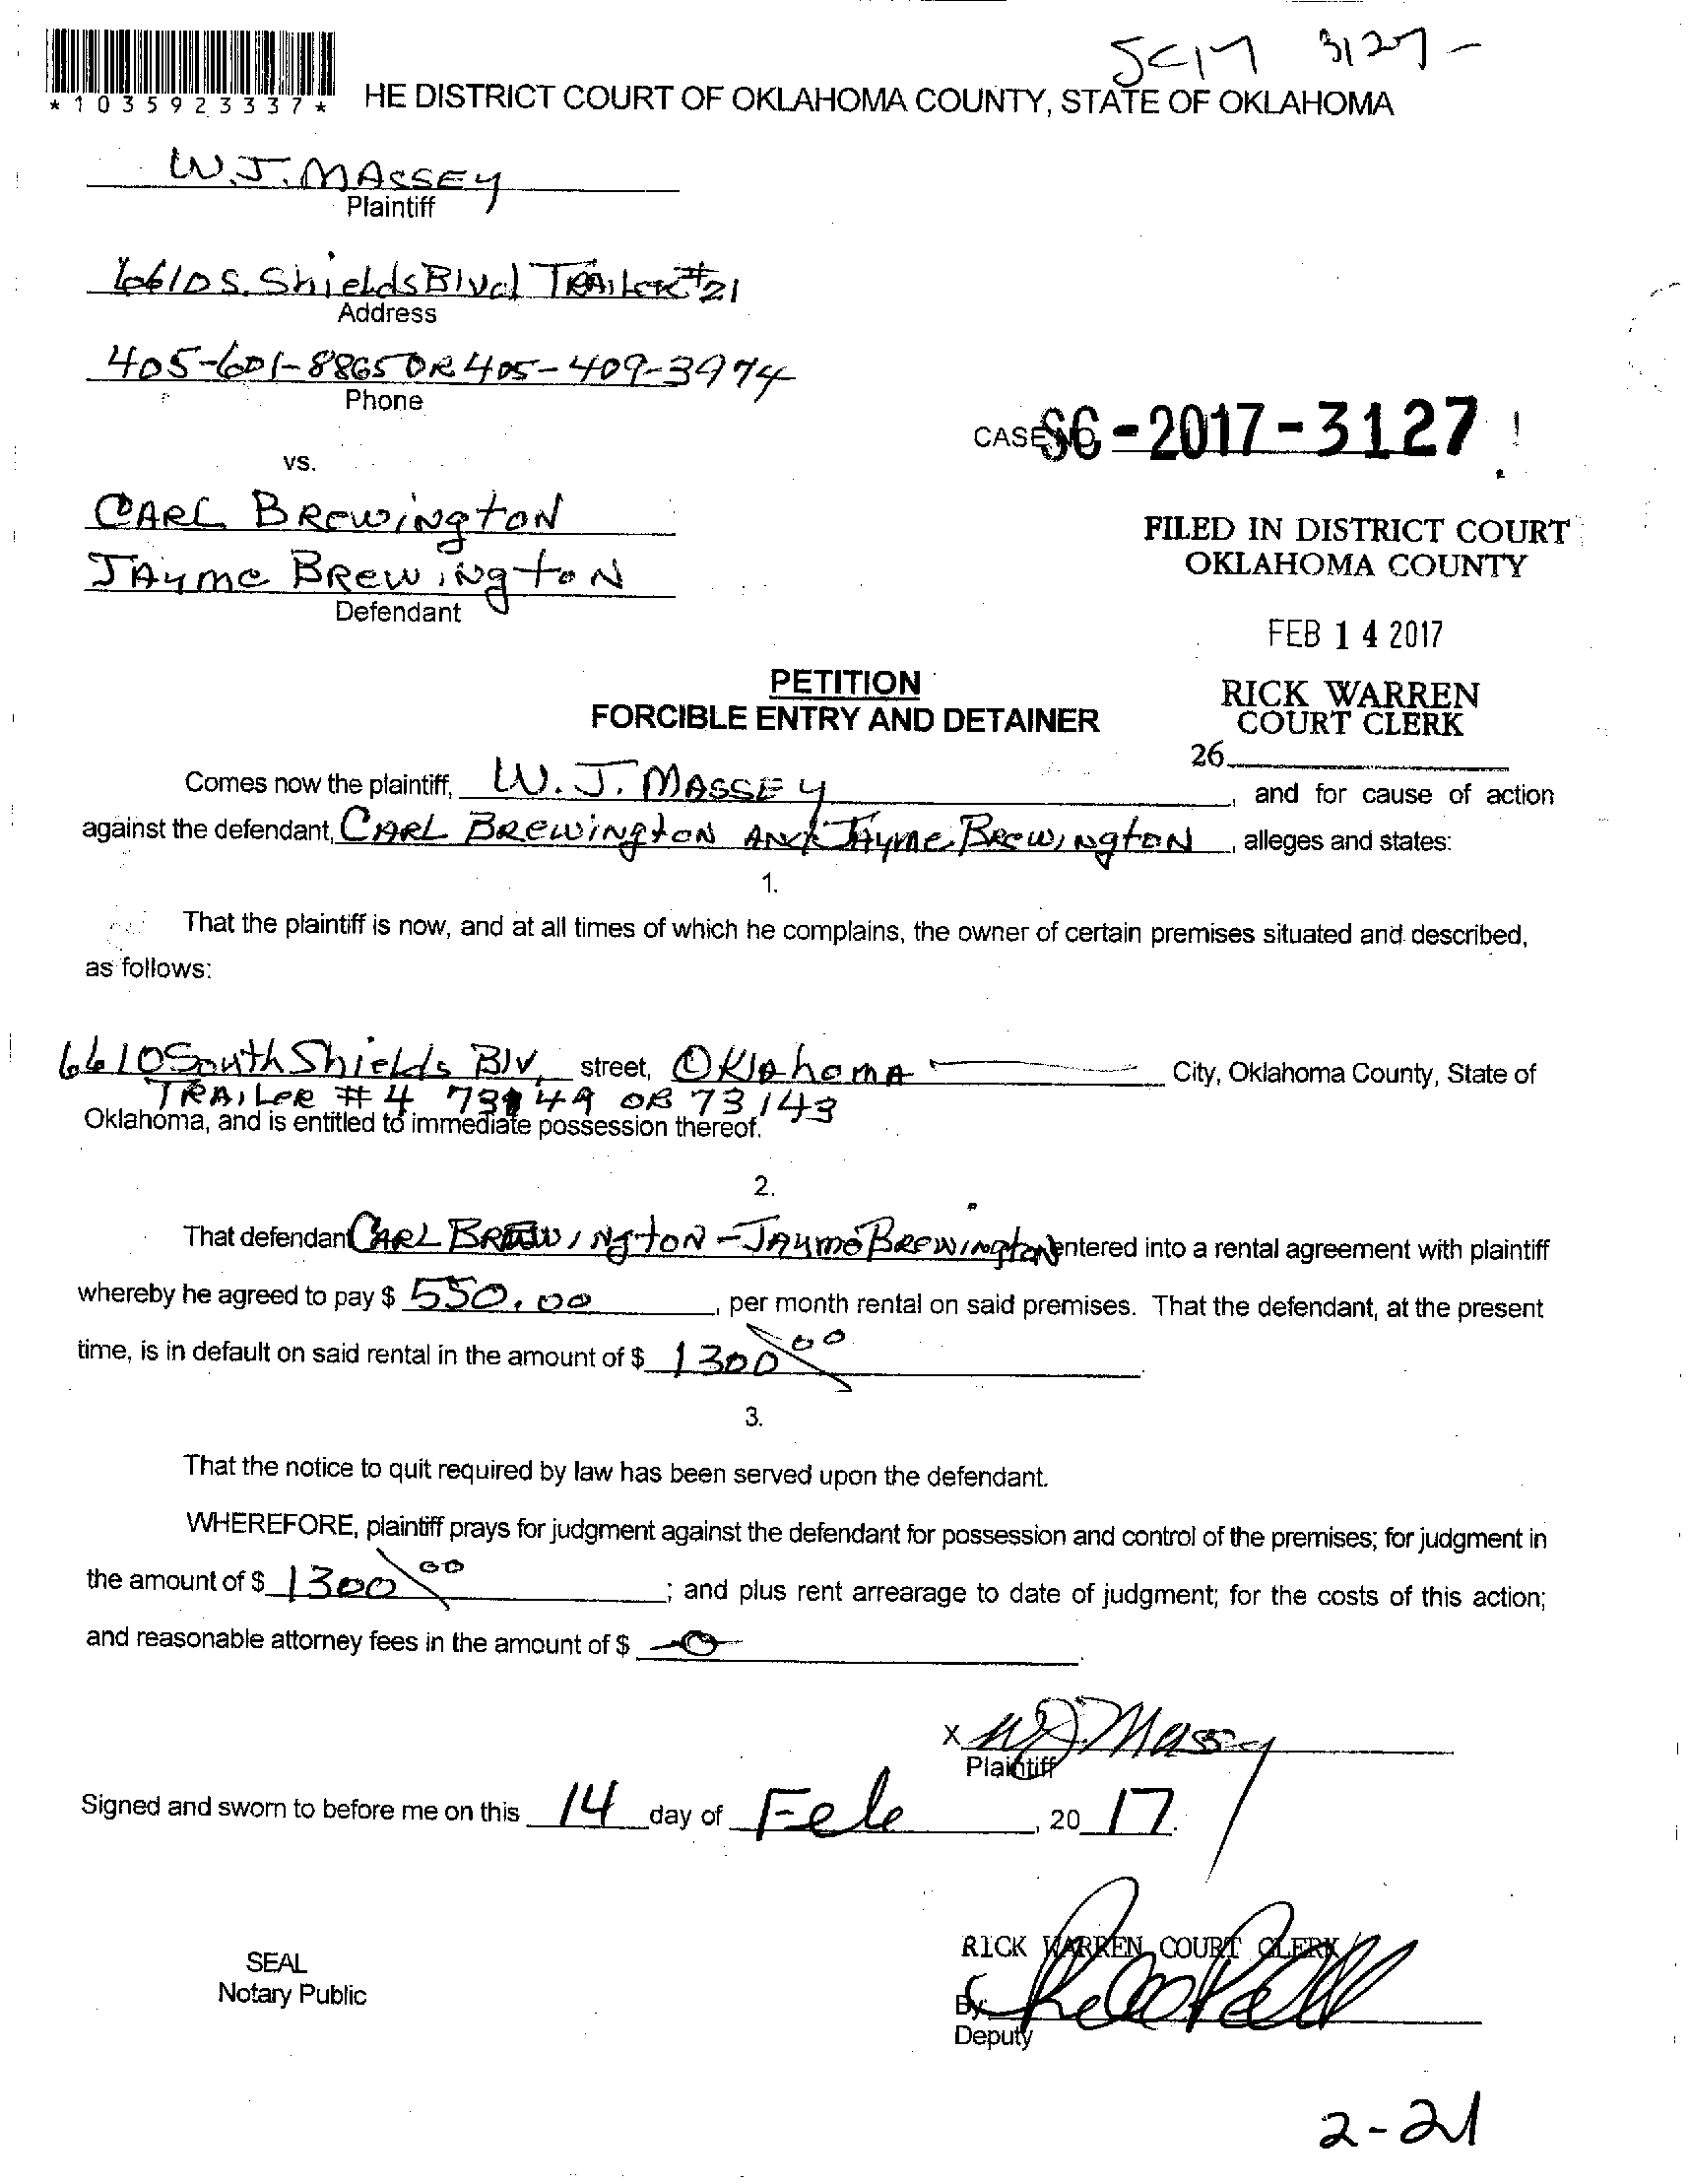 SC17 3127-
*1035923337* HE DISTRICT COURT OF OKLAHOMA COUNTY, STATE OF OKLAHOMA
W.J. MASSEY
Plaintiff
6610 S. Shields Blvd TRAILER #21
Address
405-601-8865 OR 405-409-3974
Phone
CASE NO. SC-2017-3127
vs.
CARL BREWINGTON
JAYME BREWINGTON
Defendant
FILED IN DISTRICT COURT
OKLAHOMA COUNTY
FEB 14 2017
RICK WARREN
COURT CLERK
26
PETITION
FORCIBLE ENTRY AND DETAINER
Comes now the plaintiff, W. J. MASSEY, and for cause of action
against the defendant, CARL BREWINGTON AND JAYME BREWINGTON, alleges and states:
1.
That the plaintiff is now, and at all times of which he complains, the owner of certain premises situated and described,
as follows:
6610 South Shields Blv. street, OKlahomA City, Oklahoma County, State of
TRAILER #4 73149 OR 73143
Oklahoma, and is entitled to immediate possession thereof.
2.
That defendant CARL BREWINGTON - JAYME BREWINGTON entered into a rental agreement with plaintiff
whereby he agreed to pay $ 550.00, per month rental on said premises. That the defendant, at the present
time, is in default on said rental in the amount of $ 1300 00.
3.
That the notice to quit required by law has been served upon the defendant.
WHEREFORE, plaintiff prays for judgment against the defendant for possession and control of the premises; for judgment in
the amount of $ 1300 00; and plus rent arrearage to date of judgment; for the costs of this action;
and reasonable attorney fees in the amount of $ -0-.
X W J. Massey
Plaintiff
Signed and sworn to before me on this 14 day of Feb, 20 17.
RICK WARREN COURT CLERK
SEAL
Notary Public
By:
Deputy
2-21